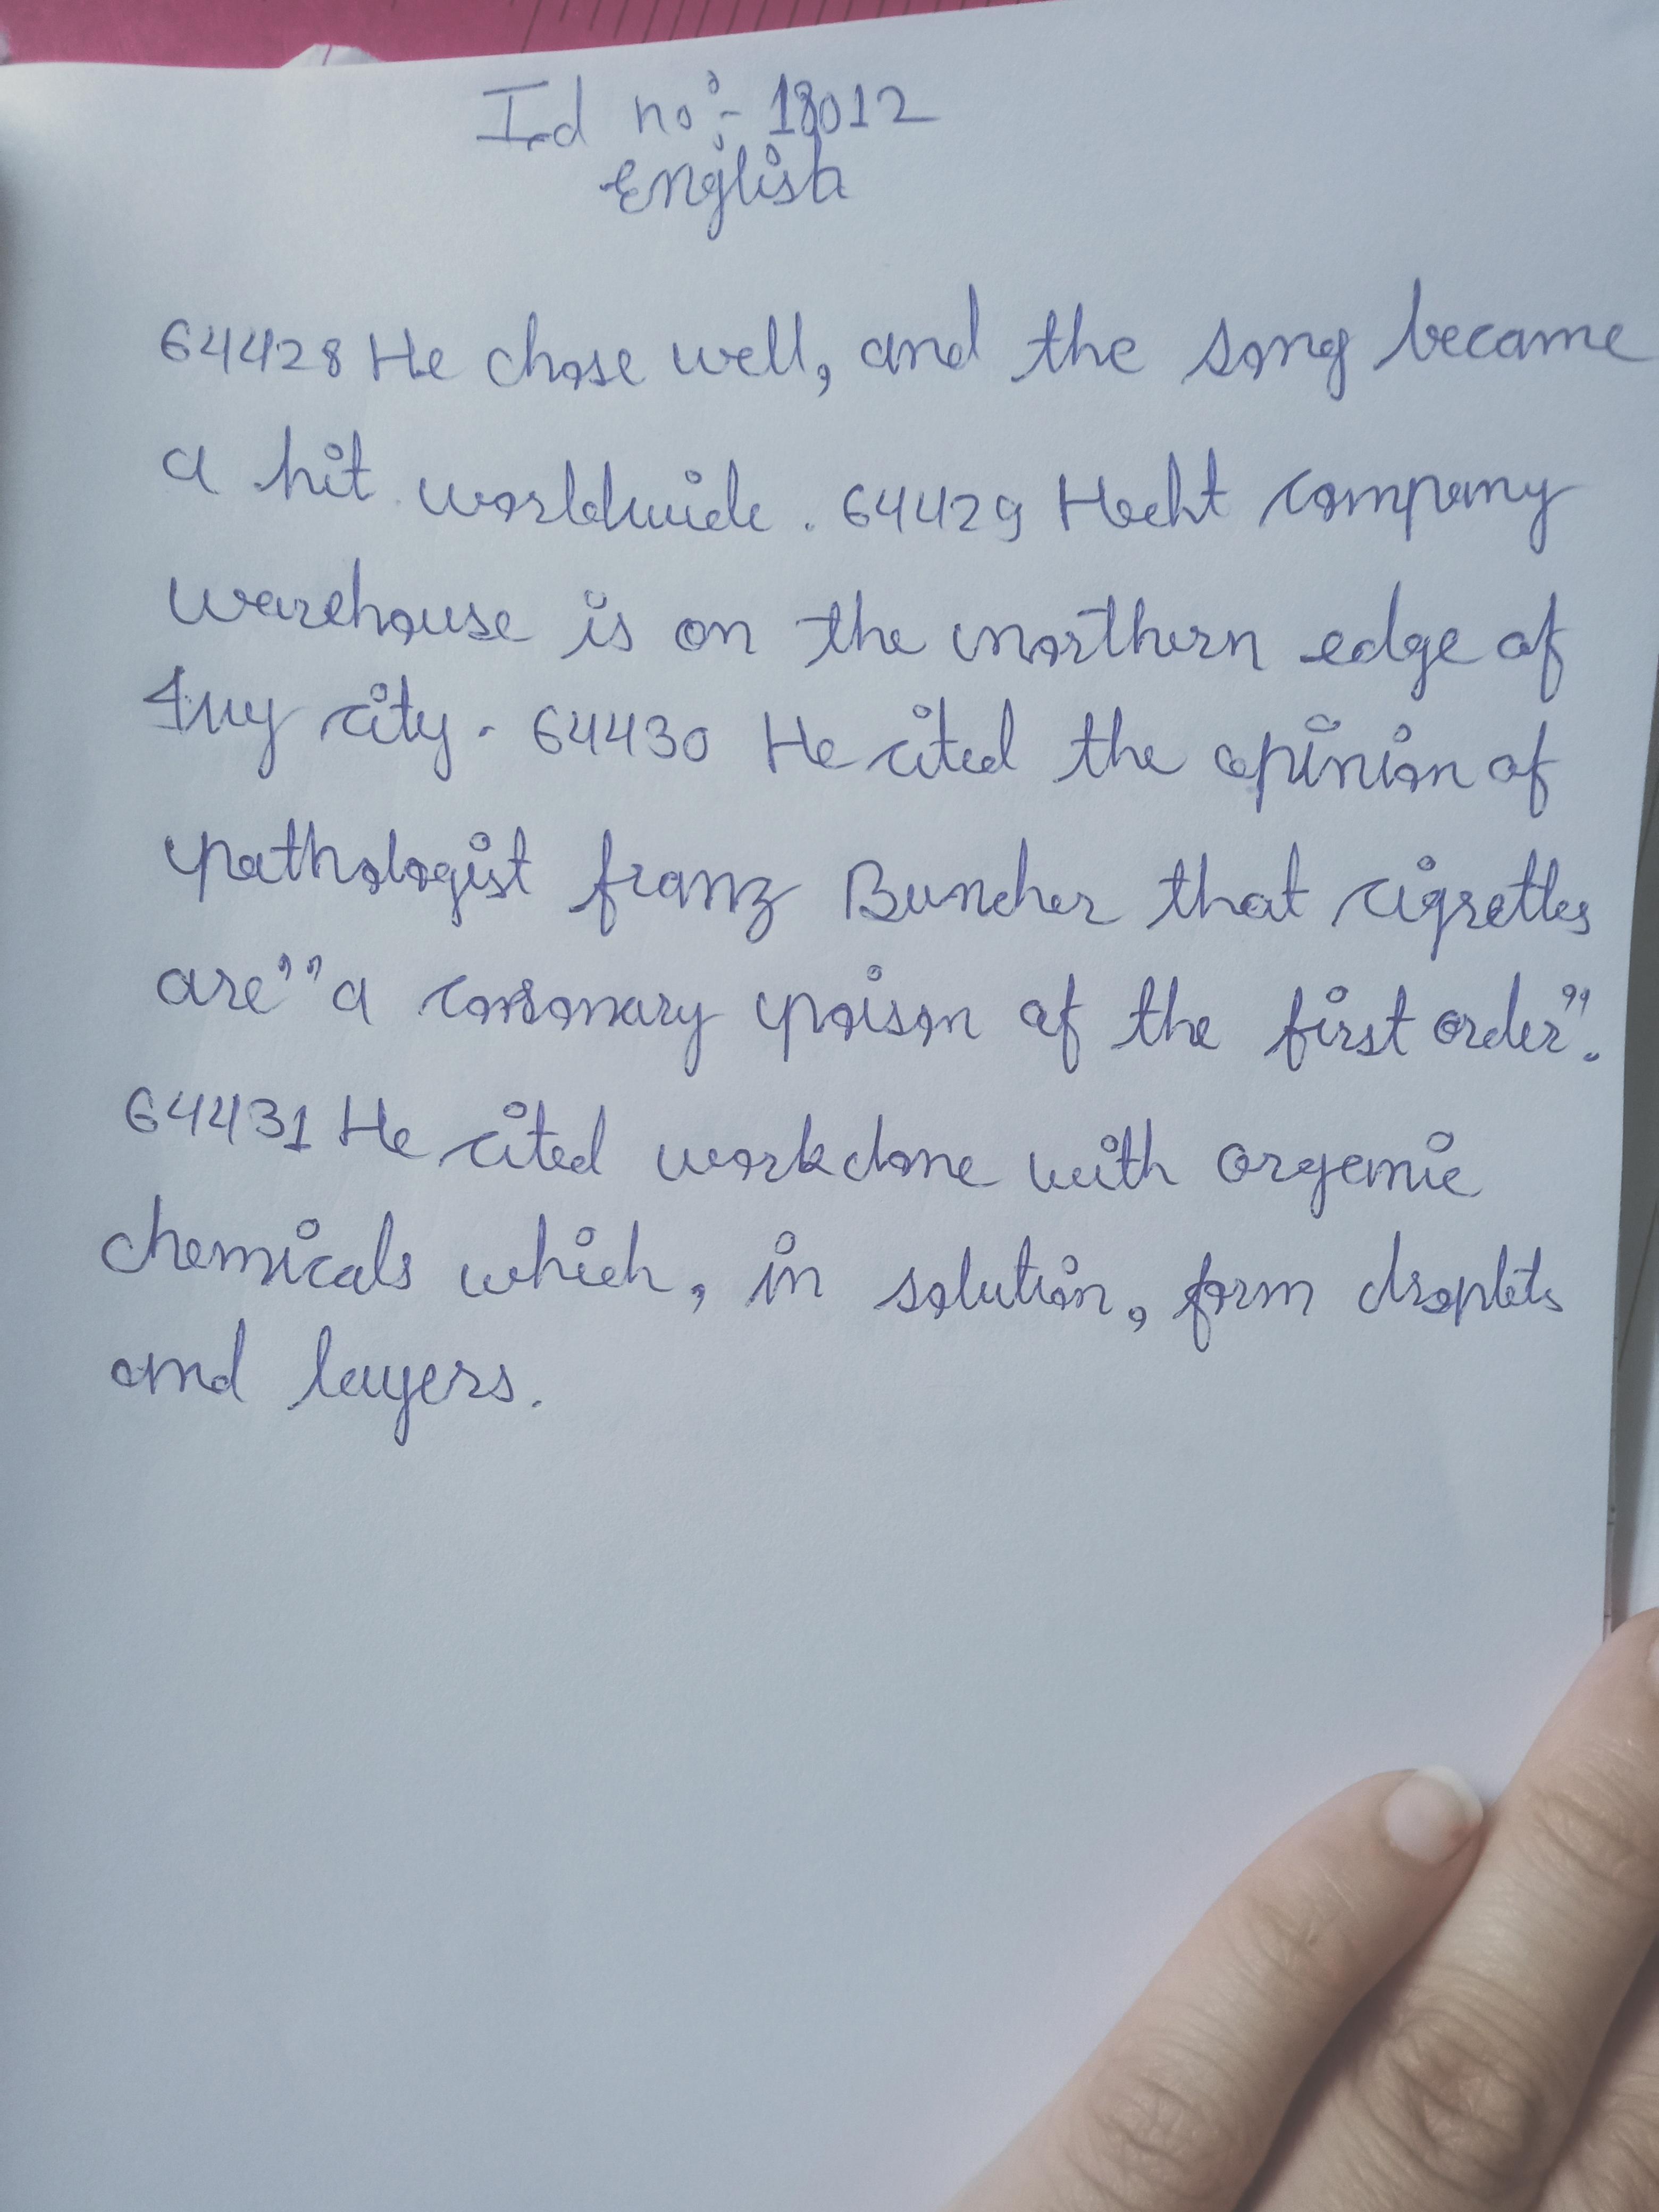 Id no:- 18012
English
64428 He chose well, and the song became
a hit worldwide. 64429 Hecht company
warehouse is on the northern edge of
Ivy city. 64430 He cited the opinion of
pathologist franz Buncher that cigrettes
are "a coronary poison of the first order".
64431 He cited work done with organic
chemicals which, in solution, form droplets
and layers.